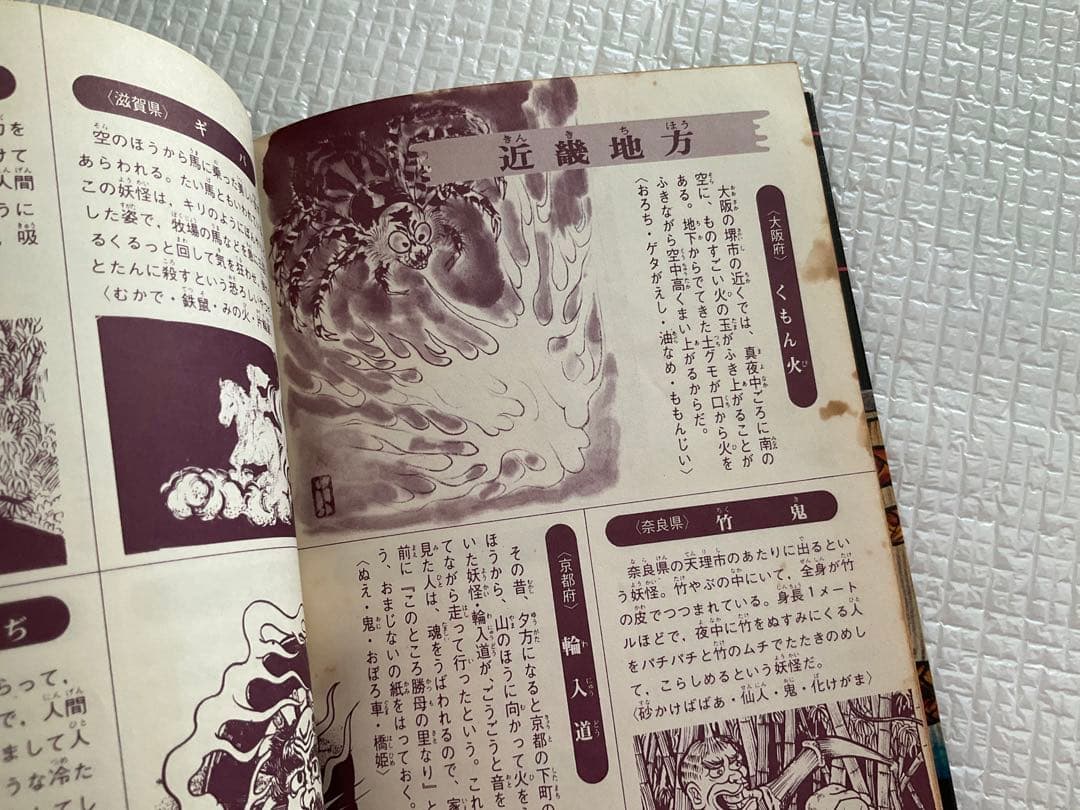 近畿地方
〈大阪府〉 くもん火
大阪の堺市の近くでは、真夜中ごろに南の
空に、ものすごい火の玉がふき上がることが
ある。地下からでてきた土グモが口から火を
ふきながら空中高くまい上がるからだ。
〈おろち・ゲタがえし・油なめ・ももんじい〉
〈奈良県〉 竹鬼
奈良県の天理市のあたりに出るとい
う妖怪。竹やぶの中にいて、全身が竹
の皮でつつまれている。身長1メート
ルほどで、夜中に竹をぬすみにくる人
をパチパチと竹のムチでたたきのめし
て、こらしめるという妖怪だ。
〈砂かけばばあ・仙人・鬼・化けがま〉
〈京都府〉 輪入道
その昔、夕方になると京都の下町の
ほうから、山のほうに向かって火を
いた妖怪・輪入道が、ごうごうと音を
てながら走って行ったという。これ
見た人は、魂をうばわれるので、家
前に『このところ勝母の里なり』と
う、おまじないの紙をはっておく。
〈ぬえ・鬼・おぼろ車・橋姫〉
〈滋賀県〉 ギバ
空のほうから馬に乗った美し
あらわれる。たい馬ともいわれ
この妖怪は、キリのようにぼん
した姿で、牧場の馬などを
るくるっと回して気を狂わせ
とたんに殺すという恐ろしい
〈むかで・鉄鼠・みの火・片
力を
けて
人間
うに
、吸
ぢ
らって、
で、人間
まして人
うな冷た
してし